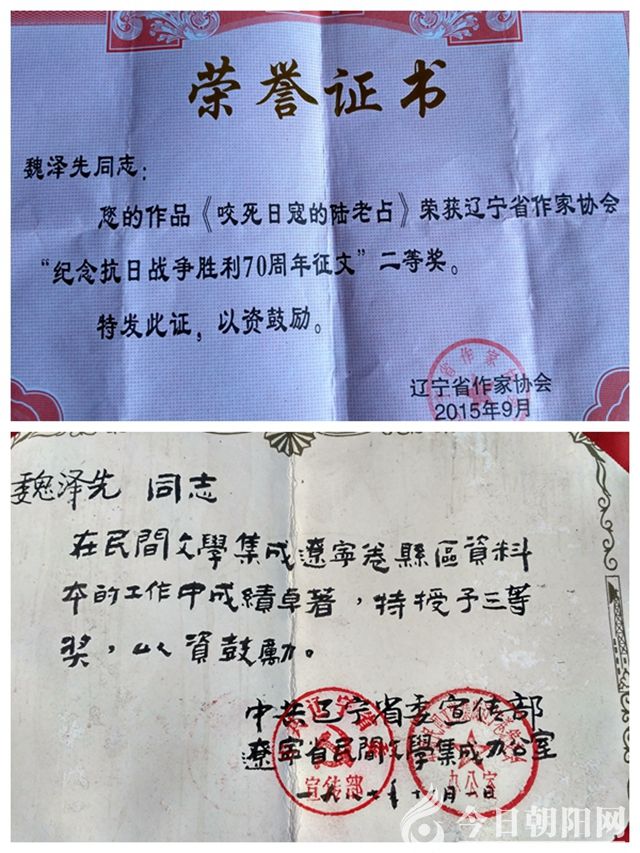 荣誉证书
魏泽先同志：
您的作品《咬死日寇的陆老占》荣获辽宁省作家协会
“纪念抗日战争胜利70周年征文”二等奖。
特发此证，以资鼓励。
辽宁省作家协会
2015年9月
魏泽先 同志
在民間文學集成遼寧卷縣區資料
本的工作中成績卓著，特授予三等
奖，以資鼓勵。
中共辽宁省委宣传部
遼寧省民間文學集成办公室
宣传部
办公室
今日朝阳网